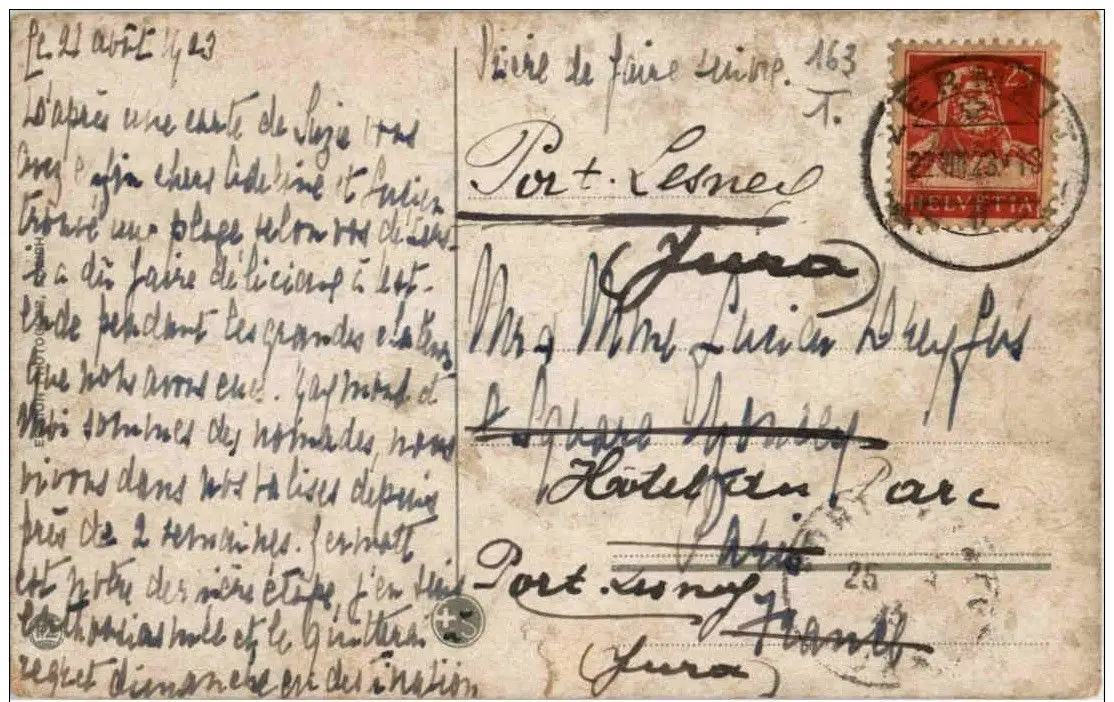 le 22 août 1923
D'après une carte de Suzie vous
avez enfin chers Adeline et Lucien
trouvé une plage selon vos désirs.
a dû faire délicieux à Ost-
ende pendant les grandes chaleurs
que nous avons eues. Raymond et
moi sommes des nomades, nous
vivons dans nos valises depuis
près de 2 semaines. Zermatt
est notre dernière étape, j'en suis
enthousiasmée et le quitterai
regret dimanche en destination
Prière de faire suivre.
163
T.
Port. Lesney
(Jura)
Mr & Mme Lucien Dreyfus
Square
Hôtel du Parc
Paris
Port. Lesney
France
(Jura)
25
HELVETIA
22 VIII 23
25